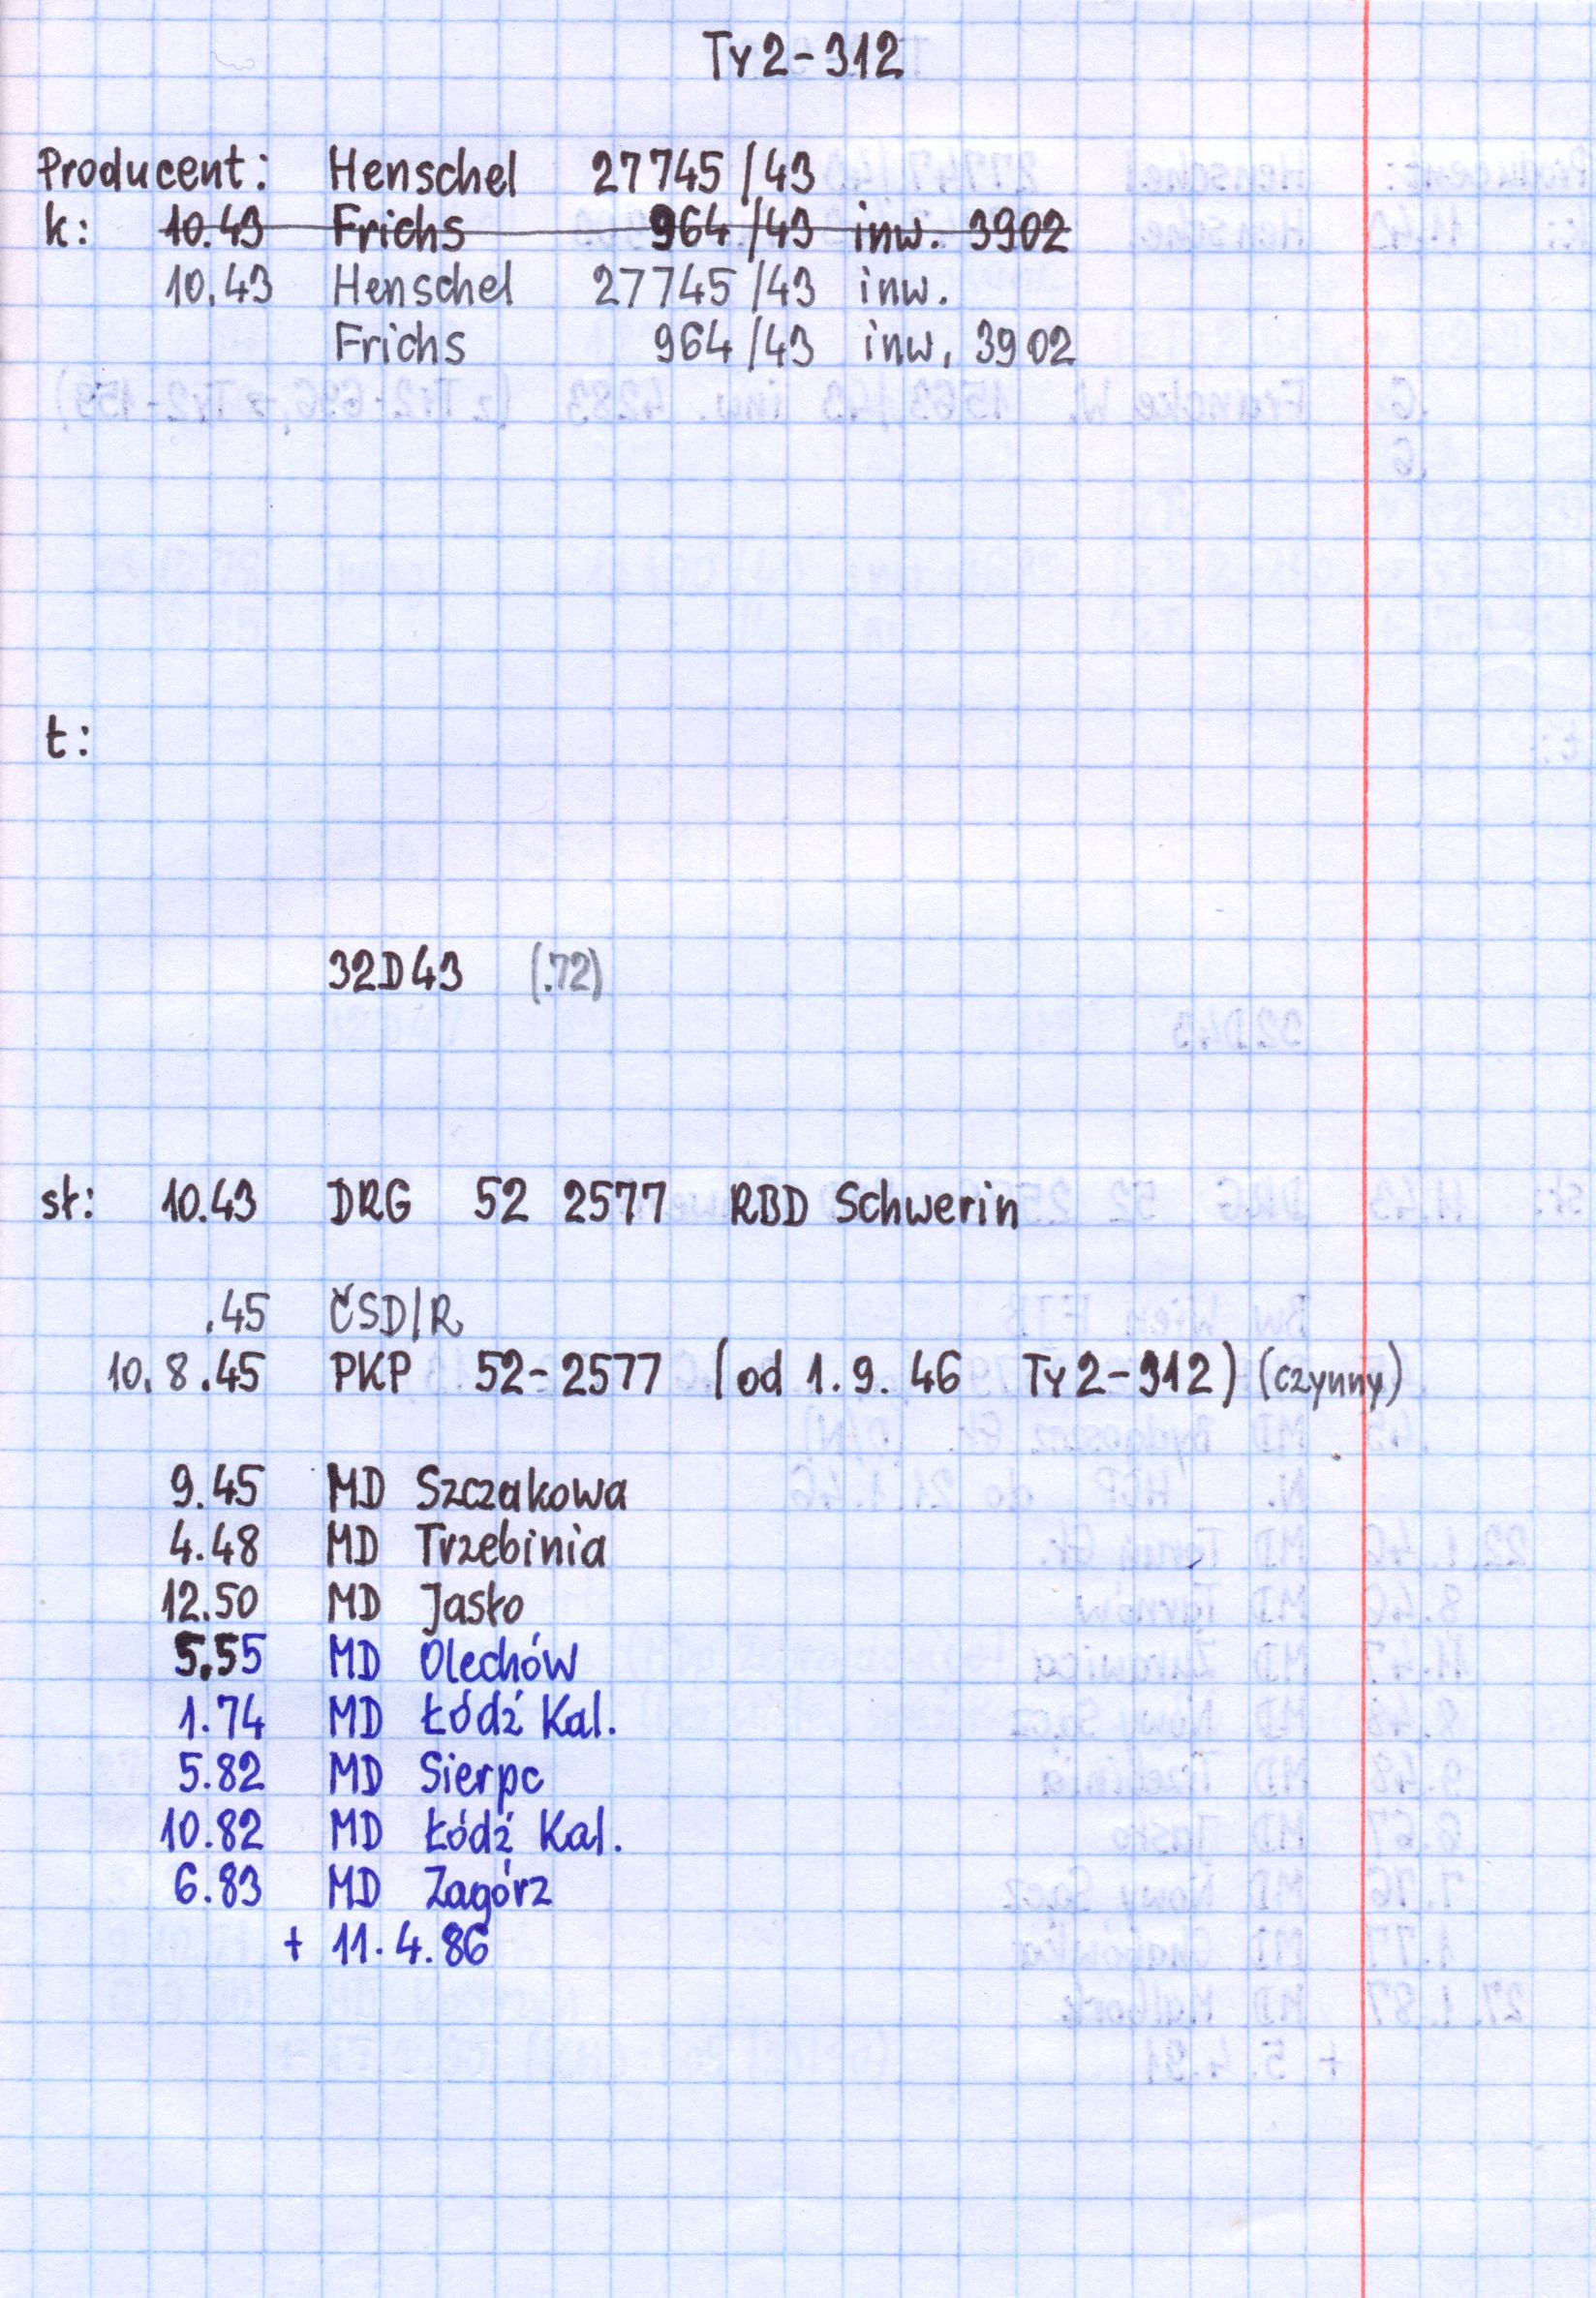 Ty2-312
Producent: Henschel 27745/43
k: 10.43 Frichs 964/43 inw. 3902
10.43 Henschel 27745/43 inw.
Frichs 964/43 inw. 3902
t:
32D43 (.72)
sł: 10.43 DRG 52 2577 RBD Schwerin
.45 ČSD/R
10.8.45 PKP 52-2577 (od 1.9.46 Ty2-312) (czynny)
9.45 MD Szczakowa
4.48 MD Trzebinia
12.50 MD Jasło
5.55 MD Olechów
1.74 MD Łódź Kal.
5.82 MD Sierpc
10.82 MD Łódź Kal.
6.83 MD Zagórz
+ 11.4.86